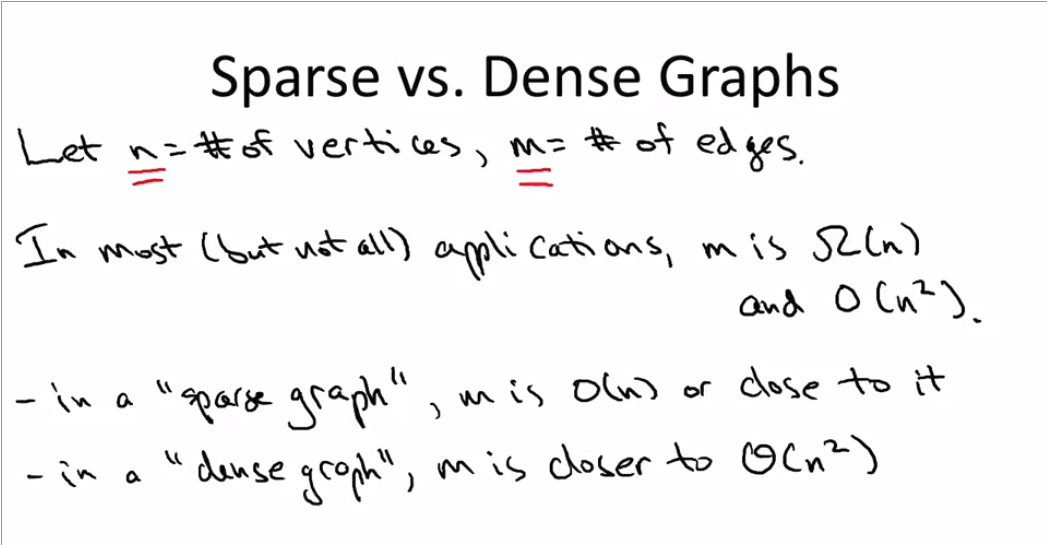 Sparse vs. Dense Graphs
Let n = # of vertices, m = # of edges.
In most (but not all) applications, m is Ω(n)
and O(n²).
- in a "sparse graph", m is O(n) or close to it
- in a "dense graph", m is closer to Θ(n²)